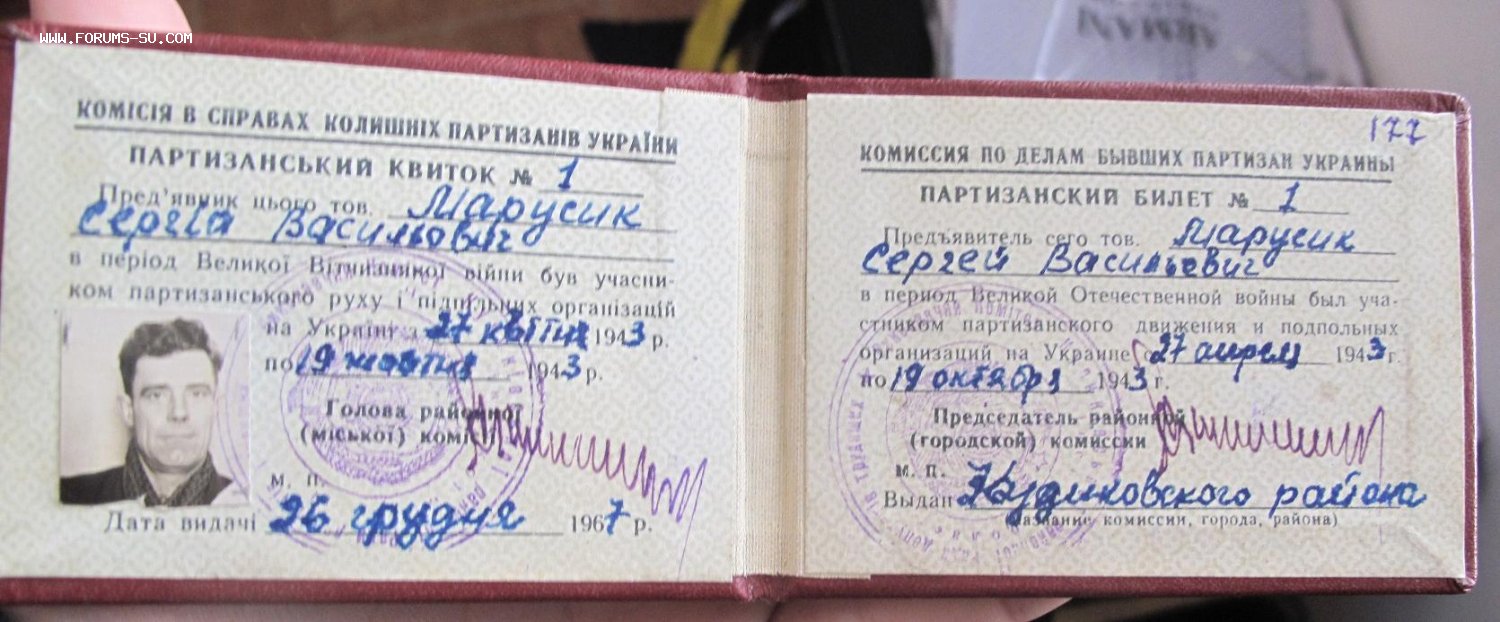 WWW.FORUMS-SU.COM
ARMANI
КОМІСІЯ В СПРАВАХ КОЛИШНІХ ПАРТИЗАНІВ УКРАЇНИ
ПАРТИЗАНСЬКИЙ КВИТОК № 1
Пред'явник цього тов. Марусик
Сергій Васильович
в період Великої Вітчизняної війни був учасни-
ком партизанського руху і підпільних організацій
на Україні з 27 квітня 1943 р.
по 19 жовтня 1943 р.
Голова районної
(міської) комісії
м. п.
Дата видачі 26 грудня 1967 р.
177
КОМИССИЯ ПО ДЕЛАМ БЫВШИХ ПАРТИЗАН УКРАИНЫ
ПАРТИЗАНСКИЙ БИЛЕТ № 1
Предъявитель сего тов. Марусик
Сергей Васильевич
в период Великой Отечественной войны был уча-
стником партизанского движения и подпольных
организаций на Украине с 27 апреля 1943 г.
по 19 октября 1943 г.
Председатель районной
(городской) комиссии
м. п.
Выдан района
(название комиссии, города, района)